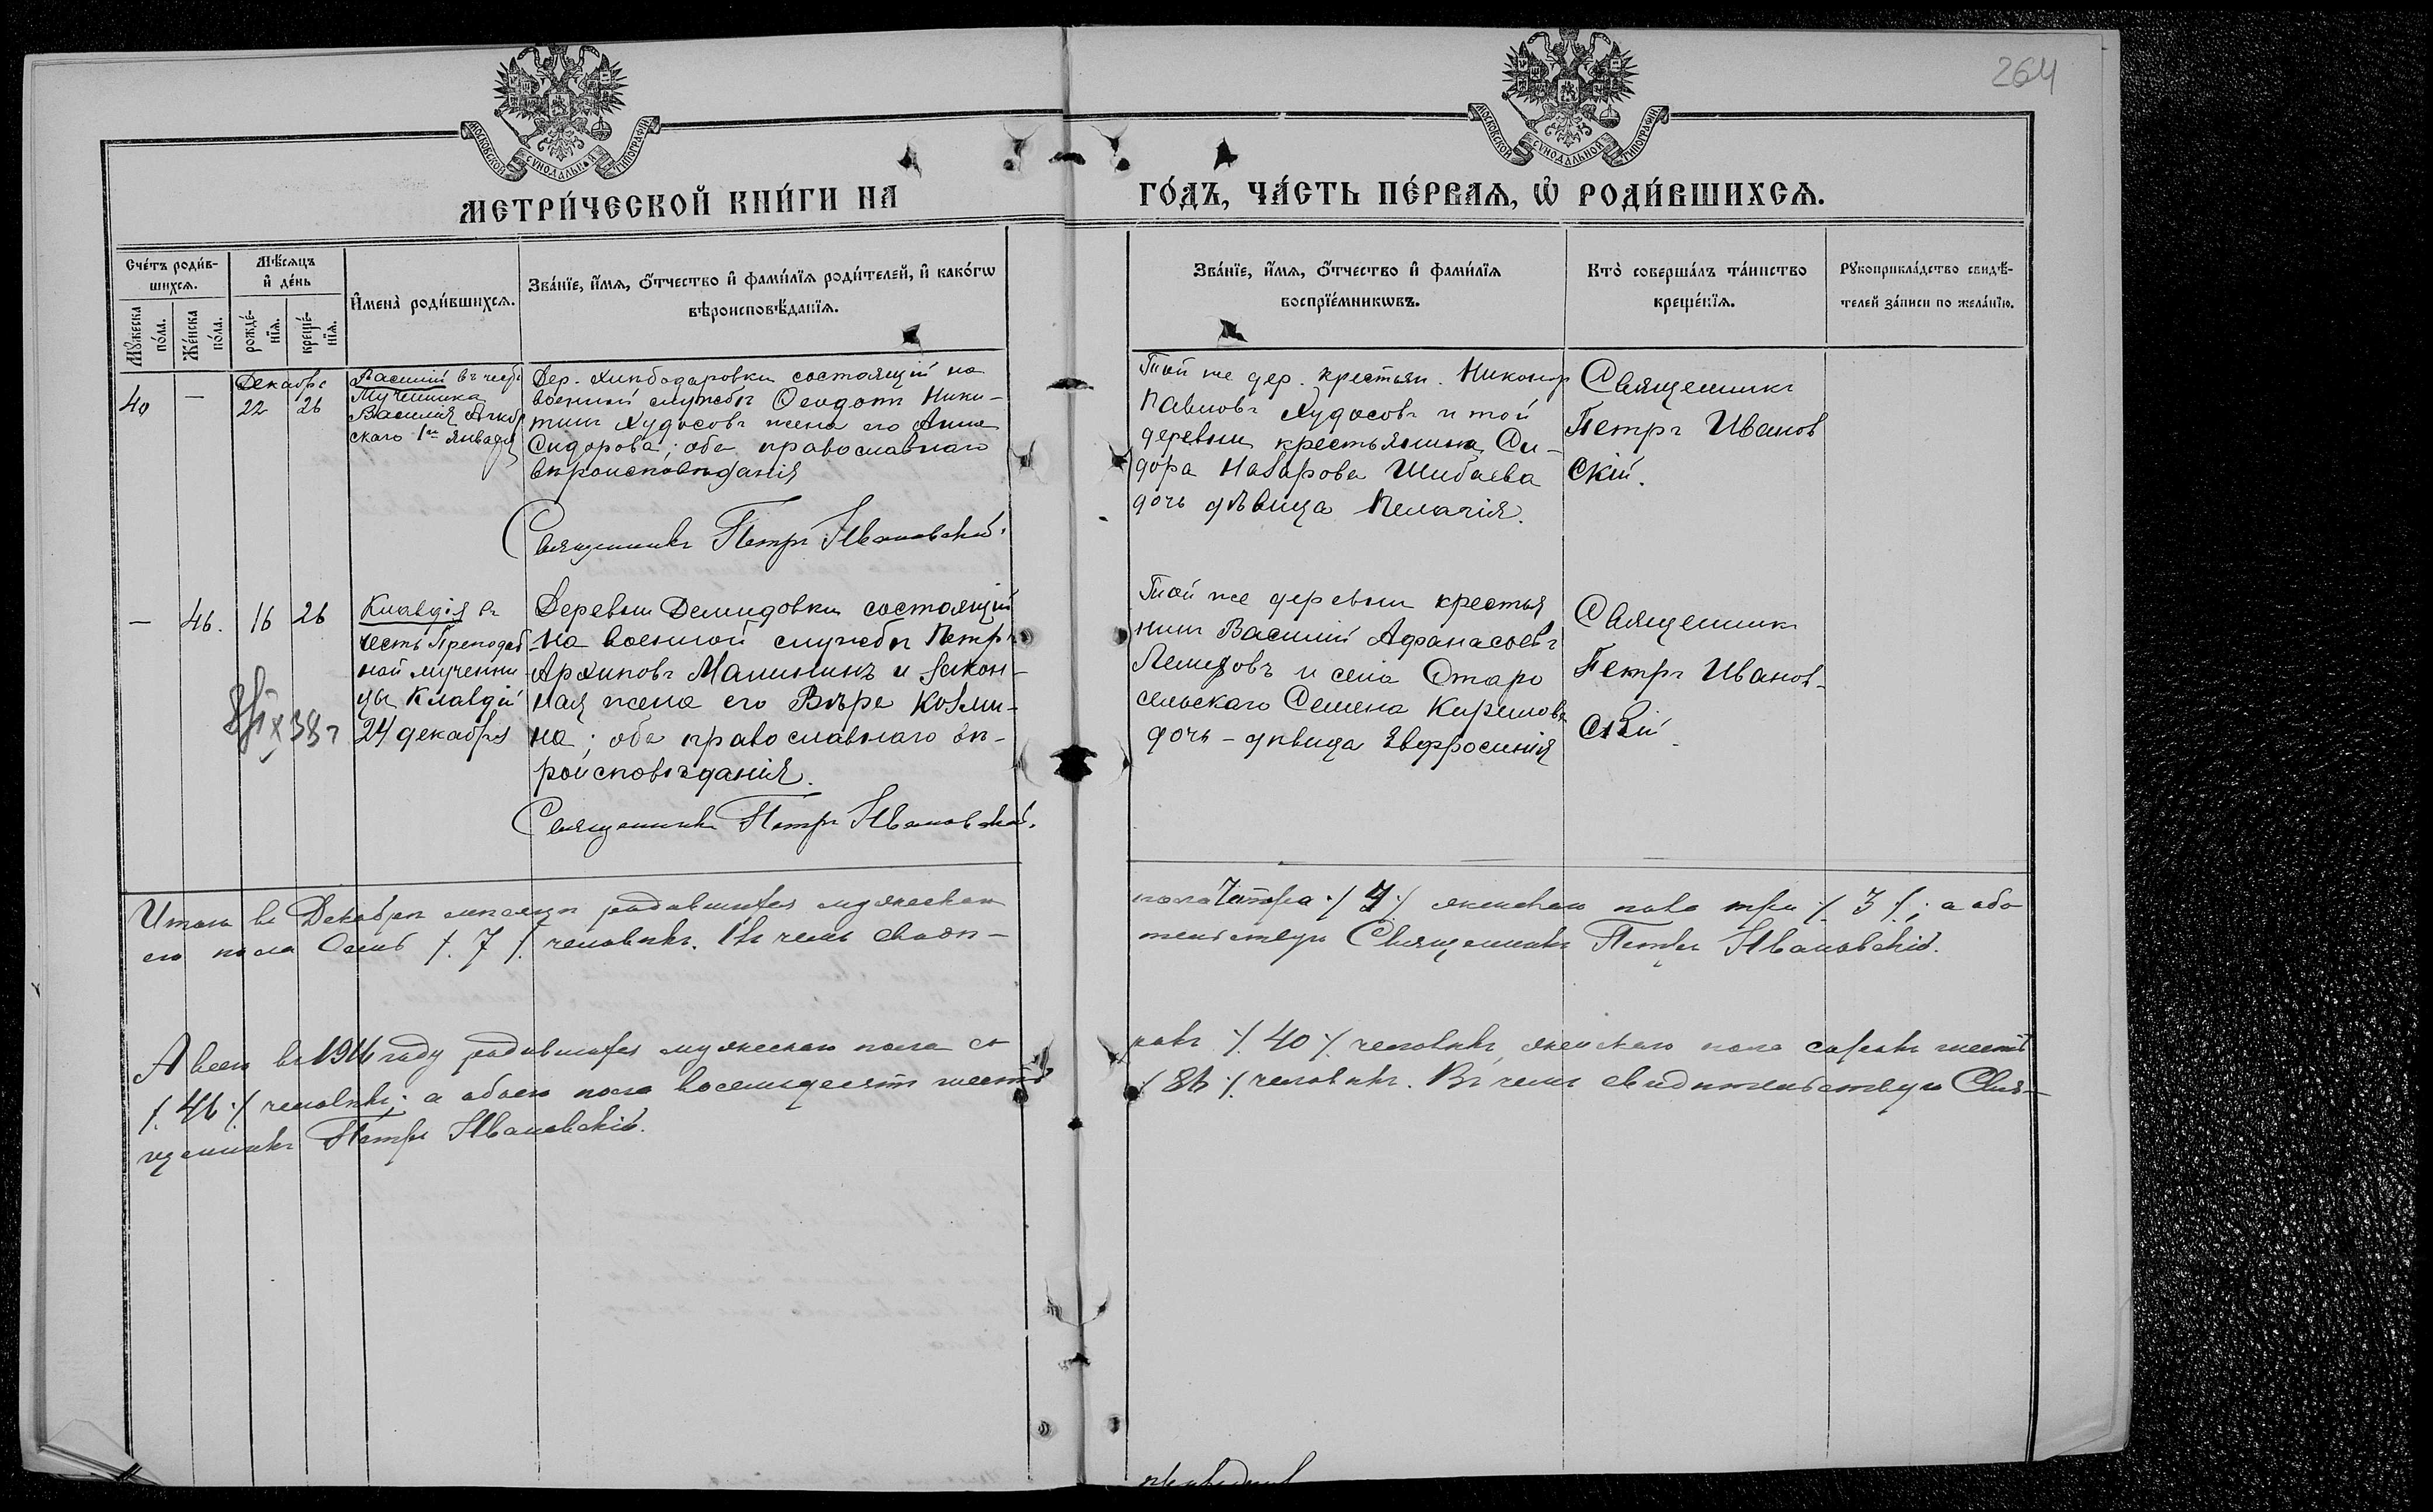 264
МОСКОВСКОЙ СѴНОДАЛЬНОЙ ТИПОГРАФІИ
МОСКОВСКОЙ СѴНОДАЛЬНОЙ ТИПОГРАФІИ
МЕТРИ́ЧЕСКОЙ КНИ́ГИ НА ГО́ДЪ, ЧА́СТЬ ПЕ́РВАѦ, Ѡ҆ РОДИ́ВШИХСѦ.
Сче́тъ роди́в-
шихсѧ.
Мꙋ́жеска по́ла.
Же́нска по́ла.
Мѣ́сѧцъ и҆ де́нь
рожде́-нїѧ.
креще́-нїѧ.
И҆мена̀ роди́вшихсѧ.
Зва́нїе, и҆́мѧ, ѻ҆́тчество и҆ фами́лїѧ роди́телей, и҆ како́гѡ
вѣроисповѣ́данїѧ.
Зва́нїе, и҆́мѧ, ѻ҆́тчество и҆ фами́лїѧ
воспрїе́мникѡвъ.
Кто̀ соверша́лъ та́инство
креще́нїѧ.
Рꙋкоприкла́дство свидѣ́-
телей за́писи по жела́нїю.
40 — Декабрь
22 26
Василій въ честь
Мученика
Василія Анкир
скаго 1го Января
Дер. состоящій на
военной службѣ Ѳеодотъ Ники-
тинъ Худосовъ жена его Анна
Сидорова; оба православнаго
вѣроисповѣданія
Священникъ Петръ Ивановскій.
Той же дер. крестьян. Никонор
Павловъ Худосовъ и той
деревни крестьянина Си-
дора Назарова Шибаева
дочь дѣвица Пелагія.
Священникъ
Петръ Иванов
скій.
— 46. 16 26
Клавдія въ
честь Преподоб
ной мучени
цы Клавдіи
24 декабря
Деревни Демидовки состоящій
на военной службѣ Петръ
Архиповъ Малининъ и закон-
ная жена его Вѣра Козми-
на; оба православнаго вѣ-
роисповѣданія.
Священникъ Петръ Ивановскій.
Той же деревни крестья
нинъ Василій Афанасьевъ
и села Старо
сельскаго Семена Кирилова
дочь - дѣвица Евфросинія
Священник
Петръ Иванов-
скій
Итого въ Декабрѣ мѣсяцѣ родившихся мужескаго
пола Четыре /. 4 ./ женскаго пола три /. 3 /.; а обо
его пола Семь /. 7 /. человѣкъ. Въ чемъ свидѣ-
тельствую Священникъ Петръ Ивановскій.
А всего въ 1916 году родившихся мужескаго пола со
рокъ /. 40 ./. человѣкъ, женскаго пола сорокъ шесть
/. 46 ./ человѣкъ; а обоего пола восемьдесятъ шесть
/. 86 ./. человѣкъ. Въ чемъ свидѣтельствую Свя-
щенникъ Петръ Ивановскій.